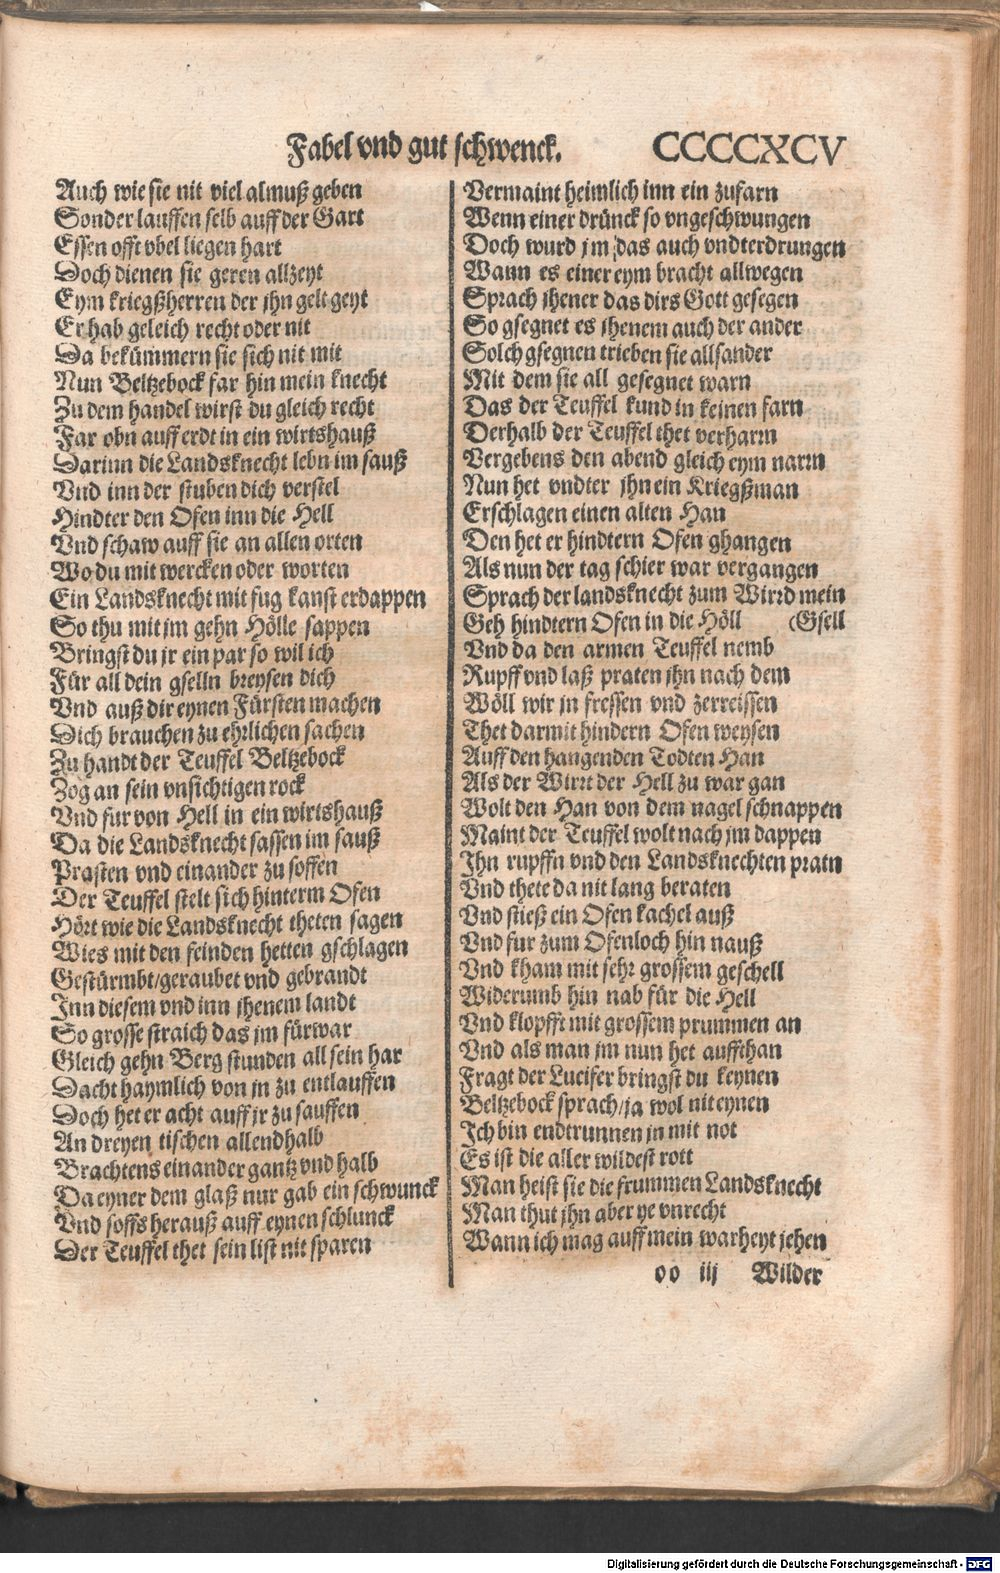 Fabel vnd gut schwenck. CCCCXCV
Auch wie sie nit viel almuß geben
Sonder lauffen selb auff der Gart
Essen offt vbel liegen hart
Doch dienen sie geren allzeyt
Eym kriegßherren der jhn gelt geyt
Er hab geleich recht oder nit
Da bekümmern sie sich nit mit
Nun Beltzebock far hin mein knecht
Zu dem handel wirst du gleich recht
Far obn auff erdt in ein wirtshauß
Darinn die Landsknecht lebn im sauß
Vnd inn der stuben dich verstel
Hindter den Ofen inn die Hell
Vnd schaw auff sie an allen orten
Wo du mit wercken oder worten
Ein Landsknecht mit fug kanst erdappen
So thu mit jm gehn Hölle sappen
Bringst du jr ein par so wil ich
Für all dein gselln breysen dich
Vnd auß dir eynen Fürsten machen
Dich brauchen zu ehrlichen sachen
Zu handt der Teuffel Beltzebock
Zog an sein vnsichtigen rock
Vnd fur von Hell in ein wirtshauß
Da die Landsknecht sassen im sauß
Prasten vnd einander zu soffen
Der Teuffel stelt sich hinterm Ofen
Hört wie die Landsknecht theten sagen
Wies mit den feinden hetten gschlagen
Gestürmbt/geraubet vnd gebrandt
Inn diesem vnd inn jhenem landt
So grosse straich das jm fürwar
Gleich gehn Berg stunden all sein har
Dacht haymlich von jn zu entlauffen
Doch het er acht auff jr zu sauffen
An dreyen tischen allendhalb
Brachtens einander gantz vnd halb
Da eyner dem glaß nur gab ein schwunck
Vnd soffs herauß auff eynen schlunck
Der Teuffel thet sein list nit sparen
Vermaint heimlich inn ein zufarn
Wenn einer drünck so vngeschwungen
Doch wurd jm das auch vndterdrungen
Wann es einer eym bracht allwegen
Sprach jhener das dirs Gott gesegen
So gsegnet es jhenem auch der ander
Solch gsegnen trieben sie allsander
Mit dem sie all gesegnet warn
Das der Teuffel kund in keinen farn
Derhalb der Teuffel thet verharrn
Vergebens den abend gleich eym narrn
Nun het vndter jhn ein Kriegßman
Erschlagen einen alten Han
Den het er hindtern Ofen ghangen
Als nun der tag schier war vergangen
Sprach der landsknecht zum Wirrd mein
Geh hindtern Ofen in die Höll (Gsell
Vnd da den armen Teuffel nemb
Rupff vnd laß praten jhn nach dem
Wöll wir jn fressen vnd zerreissen
Thet darmit hindern Ofen weysen
Auff den hangenden Todten Han
Als der Wirrt der Hell zu war gan
Wolt den Han von dem nagel schnappen
Maint der Teuffel wolt nach jm dappen
Ihn rupffn vnd den Landsknechten pratn
Vnd thete da nit lang beraten
Vnd stieß ein Ofen kachel auß
Vnd fur zum Ofenloch hin nauß
Vnd kham mit sehr grossem geschell
Widerumb hin nab für die Hell
Vnd klopfft mit grossem prummen an
Vnd als man jm nun het auffthan
Fragt der Lucifer bringst du keynen
Beltzebock sprach/ja wol nit eynen
Ich bin endtrunnen jn mit not
Es ist die aller wildest rott
Man heist sie die frummen Landsknecht
Man thut jhn aber ye vnrecht
Wann ich mag auff mein warheyt jehen
oo iij Wilder
Digitalisierung gefördert durch die Deutsche Forschungsgemeinschaft - DFG